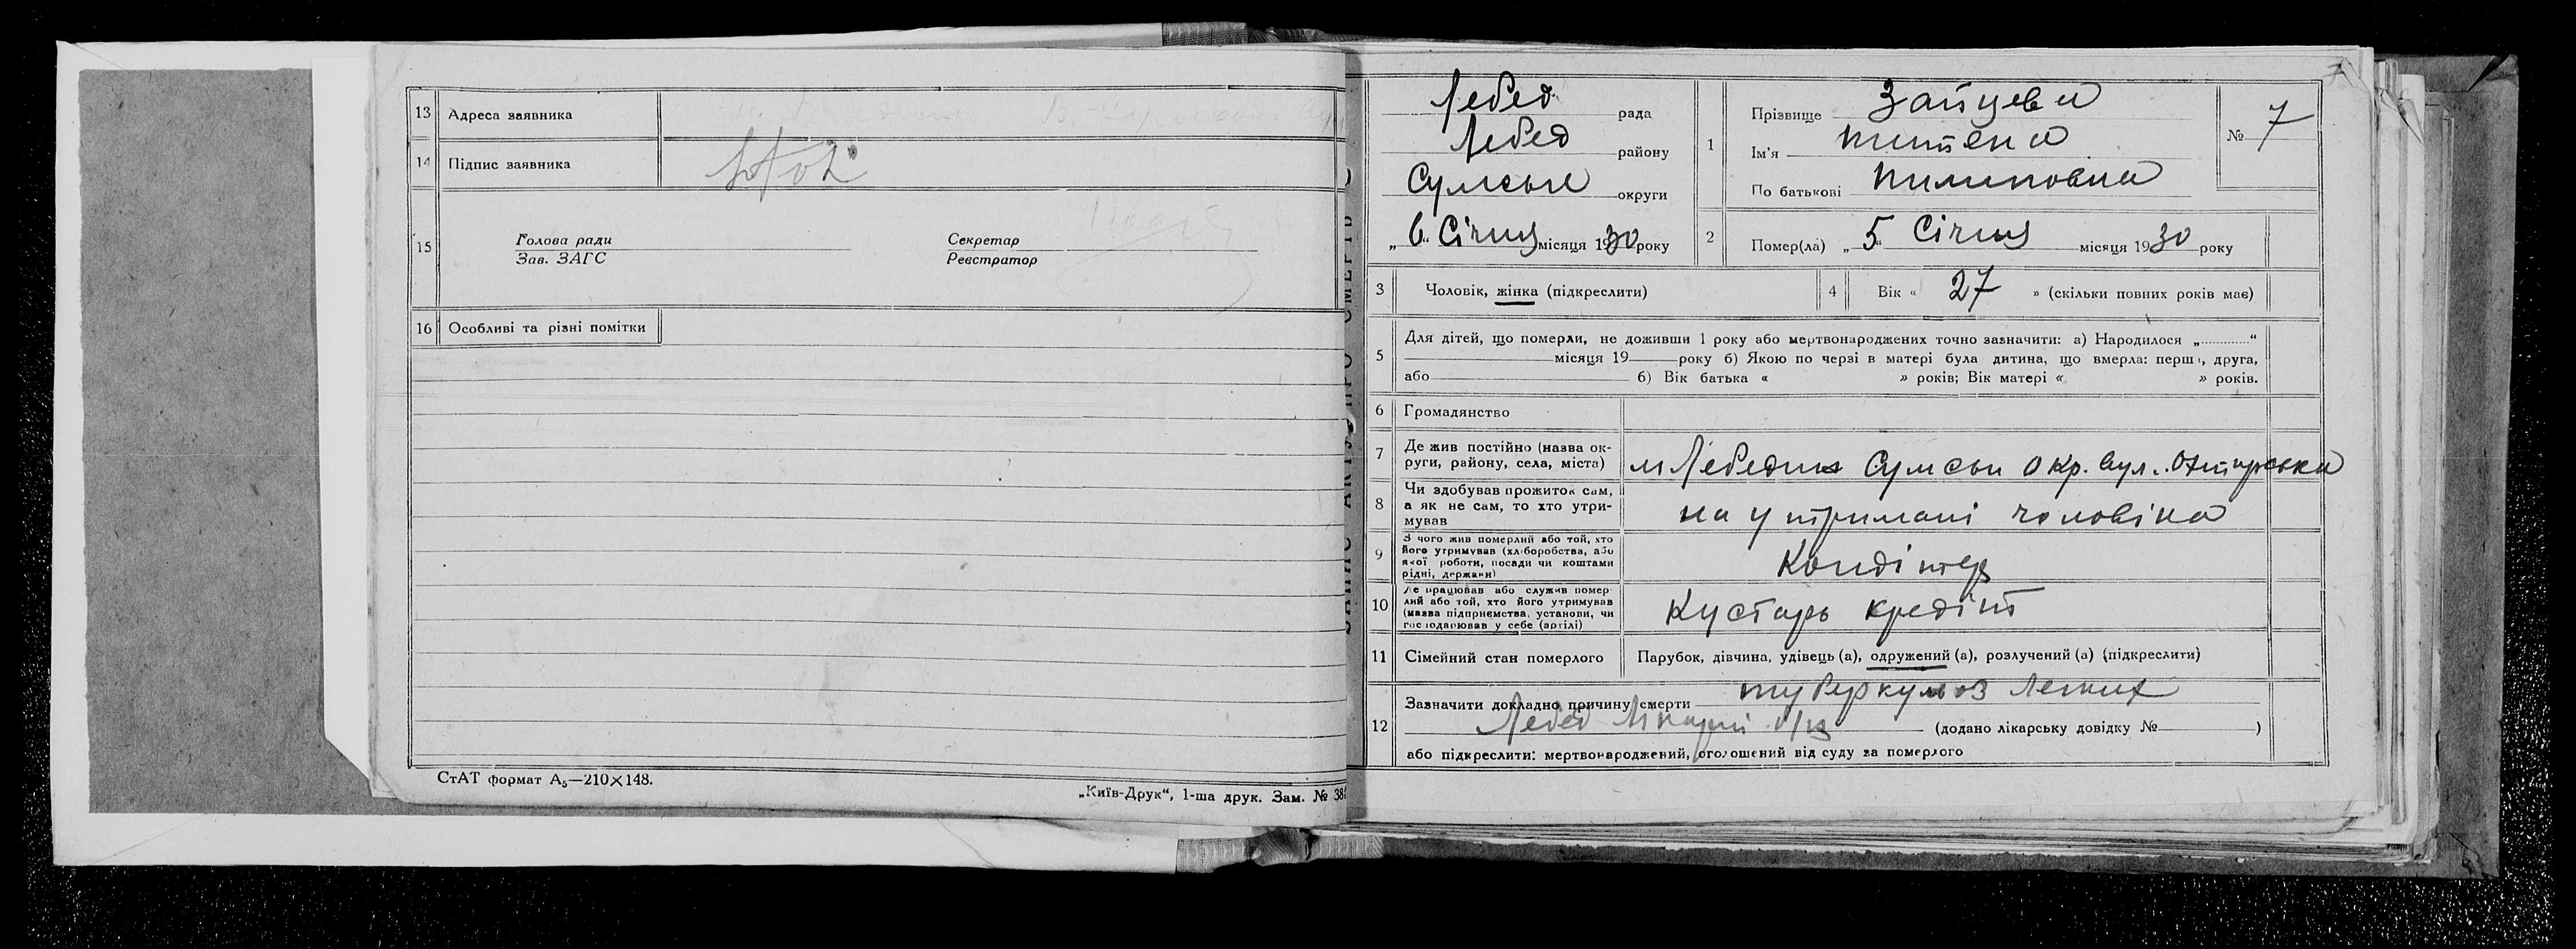 13 Адреса заявника
14 Підпис заявника
15 Голова ради
Зав. ЗАГС
Секретар
Реєстратор
16 Особливі та різні помітки
СтАТ формат А₅—210×148.
„Київ-Друк“, 1-ша друк. Зам. № 38
7
Лебед. рада
Лебед району
Сумськ округи
„ 6 “ Січня місяця 1930 року
1 Прізвище Зайцева
Ім'я
По батькові Пилиповна
№ 7
2 Помер(ла) „ 5 “ Січня місяця 1930 року
3 Чоловік, жінка (підкреслити)
4 Вік « 27 » (скільки повних років має)
5 Для дітей, що померли, не доживши 1 року або мертвонароджених точно зазначити: а) Народилося „ “
місяця 19 року б) Якою по черзі в матері була дитина, що вмерла: перша, друга,
або б) Вік батька « » років; Вік матері « » років.
6 Громадянство
7 Де жив постійно (назва ок-
руги, району, села, міста) м Лебедин Сумськ окр. вул. Охтирська
8 Чи здобував прожиток сам,
а як не сам, то хто утри-
мував на утримані чоловіка
9 З чого жив померлий або той, хто
його утримував (хліборобства, або
якої роботи, посади чи коштами
рідні, держави) Кондітер
10 Де працював або служив помер-
лий або той, хто його утримував
(назва підприємства, установи, чи
господарював у себе (артілі) Кустарь кредіт
11 Сімейний стан померлого Парубок, дівчина, удівець (а), одружений (а), розлучений (а) (підкреслити)
12 Зазначити докладно причину смерти туберкульоз легких
Лебед (додано лікарську довідку № )
або підкреслити: мертвонароджений, оголошений від суду за померлого